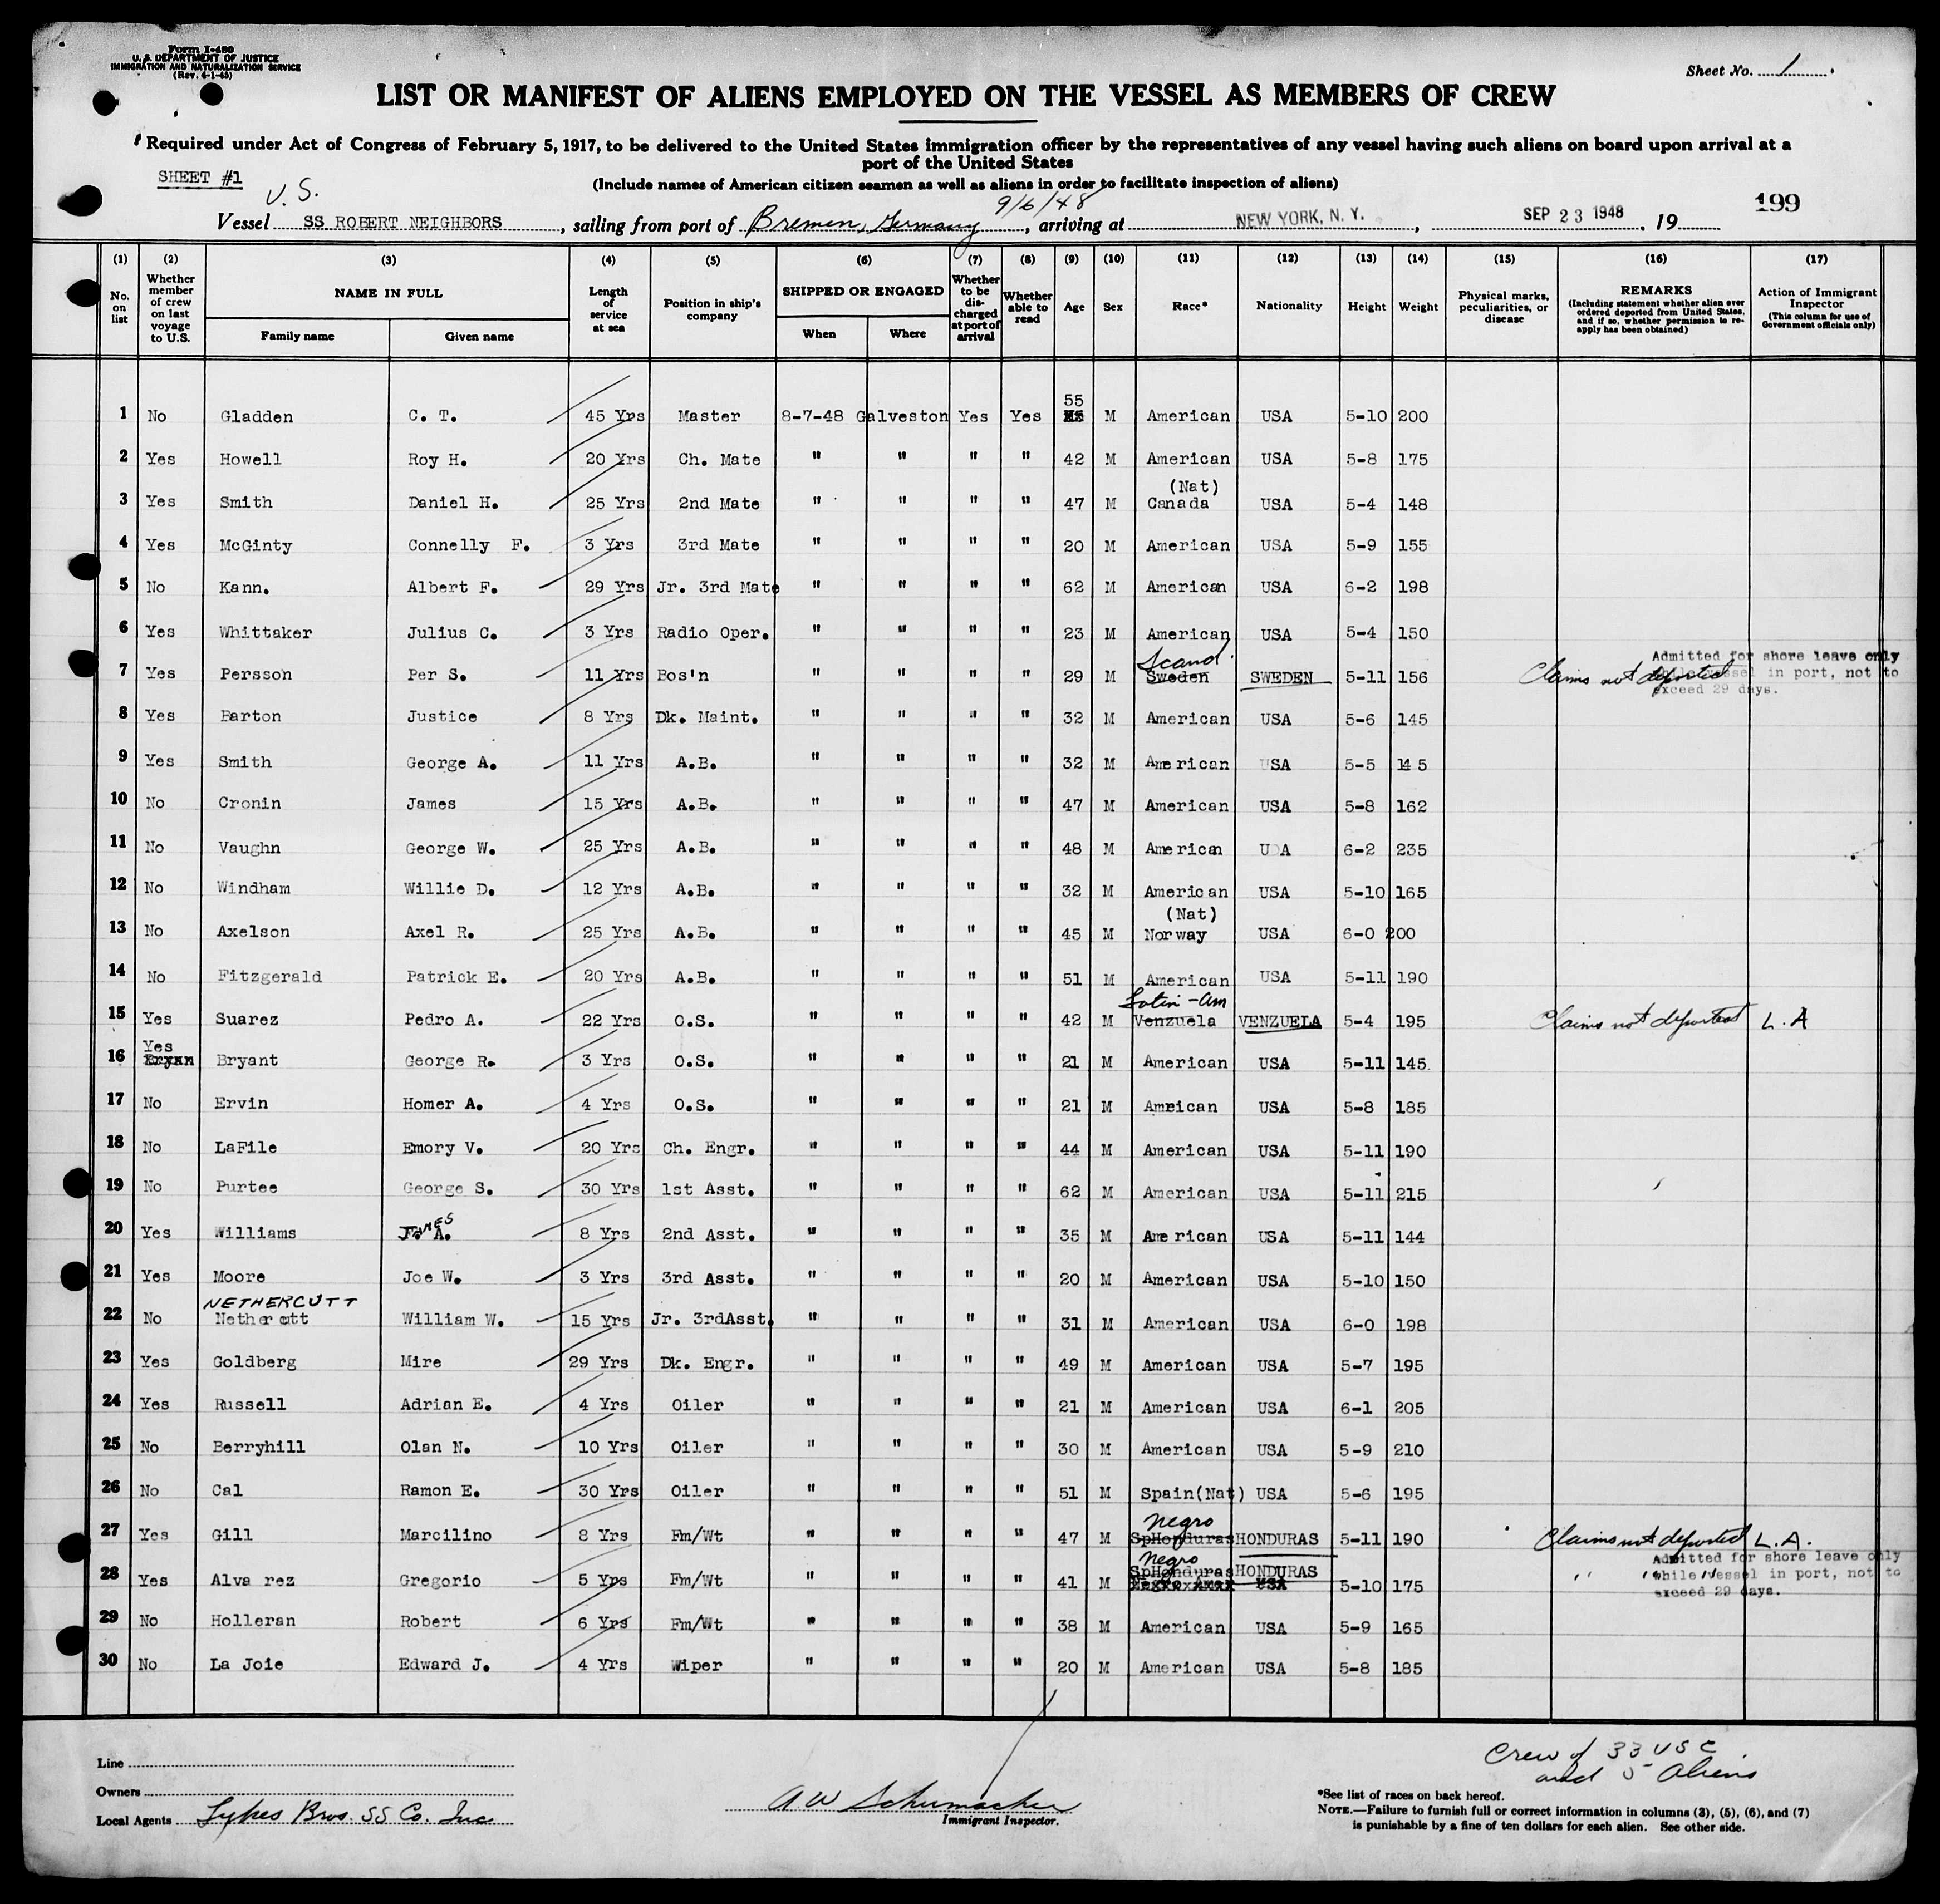 Form I-480
U. S. DEPARTMENT OF JUSTICE
IMMIGRATION AND NATURALIZATION SERVICE
(Rev. 4-1-45)
Sheet No. 1
LIST OR MANIFEST OF ALIENS EMPLOYED ON THE VESSEL AS MEMBERS OF CREW
Required under Act of Congress of February 5, 1917, to be delivered to the United States immigration officer by the representatives of any vessel having such aliens on board upon arrival at a
port of the United States
SHEET #1
(Include names of American citizen seamen as well as aliens in order to facilitate inspection of aliens)
U. S.
9/6/48
199
Vessel SS ROBERT NEIGHBORS, sailing from port of Bremen, Germany, arriving at NEW YORK, N. Y., SEP 23 1948, 19
(1) (2) (3) (4) (5) (6) (7) (8) (9) (10) (11) (12) (13) (14) (15) (16) (17)
No. on list
Whether member of crew on last voyage to U.S.
NAME IN FULL
Family name
Given name
Length of service at sea
Position in ship's company
SHIPPED OR ENGAGED
When
Where
Whether to be discharged at port of arrival
Whether able to read
Age
Sex
Race*
Nationality
Height
Weight
Physical marks, peculiarities, or disease
REMARKS
(Including statement whether alien ever ordered deported from United States, and if so, whether permission to reapply has been obtained)
Action of Immigrant Inspector
(This column for use of Government officials only)
55
1 No Gladden C. T. 45 Yrs Master 8-7-48 Galveston Yes Yes M American USA 5-10 200
2 Yes Howell Roy H. 20 Yrs Ch. Mate " " " " 42 M American USA 5-8 175
(Nat)
3 Yes Smith Daniel H. 25 Yrs 2nd Mate " " " " 47 M Canada USA 5-4 148
4 Yes McGinty Connelly F. 3 Yrs 3rd Mate " " " " 20 M American USA 5-9 155
5 No Kann. Albert F. 29 Yrs Jr. 3rd Mate " " " " 62 M American USA 6-2 198
6 Yes Whittaker Julius C. 3 Yrs Radio Oper. " " " " 23 M American USA 5-4 150
Scand.
7 Yes Persson Per S. 11 Yrs Bos'n " " " " 29 M Sweden SWEDEN 5-11 156 Claims not deported
Admitted for shore leave only
while vessel in port, not to
exceed 29 days.
8 Yes Barton Justice 8 Yrs Dk. Maint. " " " " 32 M American USA 5-6 145
9 Yes Smith George A. 11 Yrs A.B. " " " " 32 M American USA 5-5 145
10 No Cronin James 15 Yrs A.B. " " " " 47 M American USA 5-8 162
11 No Vaughn George W. 25 Yrs A.B. " " " " 48 M American USA 6-2 235
12 No Windham Willie D. 12 Yrs A.B. " " " " 32 M American USA 5-10 165
(Nat)
13 No Axelson Axel R. 25 Yrs A.B. " " " " 45 M Norway USA 6-0 200
14 No Fitzgerald Patrick E. 20 Yrs A.B. " " " " 51 M American USA 5-11 190
Latin-Am
15 Yes Suarez Pedro A. 22 Yrs O.S. " " " " 42 M Venzuela VENZUELA 5-4 195 Claims not deported L. A
Yes
16 Bryant George R. 3 Yrs O.S. " " " " 21 M American USA 5-11 145
17 No Ervin Homer A. 4 Yrs O.S. " " " " 21 M Amrican USA 5-8 185
18 No LaFile Emory V. 20 Yrs Ch. Engr. " " " " 44 M American USA 5-11 190
19 No Purtee George S. 30 Yrs 1st Asst. " " " " 62 M American USA 5-11 215
20 Yes Williams JAMES A. 8 Yrs 2nd Asst. " " " " 35 M American USA 5-11 144
21 Yes Moore Joe W. 3 Yrs 3rd Asst. " " " " 20 M American USA 5-10 150
NETHERCUTT
22 No Nethercutt William W. 15 Yrs Jr. 3rdAsst. " " " " 31 M American USA 6-0 198
23 Yes Goldberg Mire 29 Yrs Dk. Engr. " " " " 49 M American USA 5-7 195
24 Yes Russell Adrian E. 4 Yrs Oiler " " " " 21 M American USA 6-1 205
25 No Berryhill Olan N. 10 Yrs Oiler " " " " 30 M American USA 5-9 210
26 No Cal Ramon E. 30 Yrs Oiler " " " " 51 M Spain(Nat) USA 5-6 195
Negro
27 Yes Gill Marcilino 8 Yrs Fm/Wt " " " " 47 M SpHonduras HONDURAS 5-11 190 Claims not deported L.A.
Negro
SpHonduras HONDURAS
28 Yes Alvarez Gregorio 5 Yrs Fm/Wt " " " " 41 M USA 5-10 175 " " "
Admitted for shore leave only
while vessel in port, not to
exceed 29 days.
29 No Holleran Robert 6 Yrs Fm/Wt " " " " 38 M American USA 5-9 165
30 No La Joie Edward J. 4 Yrs Wiper " " " " 20 M American USA 5-8 185
Crew of 33 USC
and 5 Aliens
Line
Owners
Local Agents Lykes Bros. SS Co. Inc
A W Schumacher
Immigrant Inspector.
*See list of races on back hereof.
NOTE.—Failure to furnish full or correct information in columns (3), (5), (6), and (7)
is punishable by a fine of ten dollars for each alien. See other side.